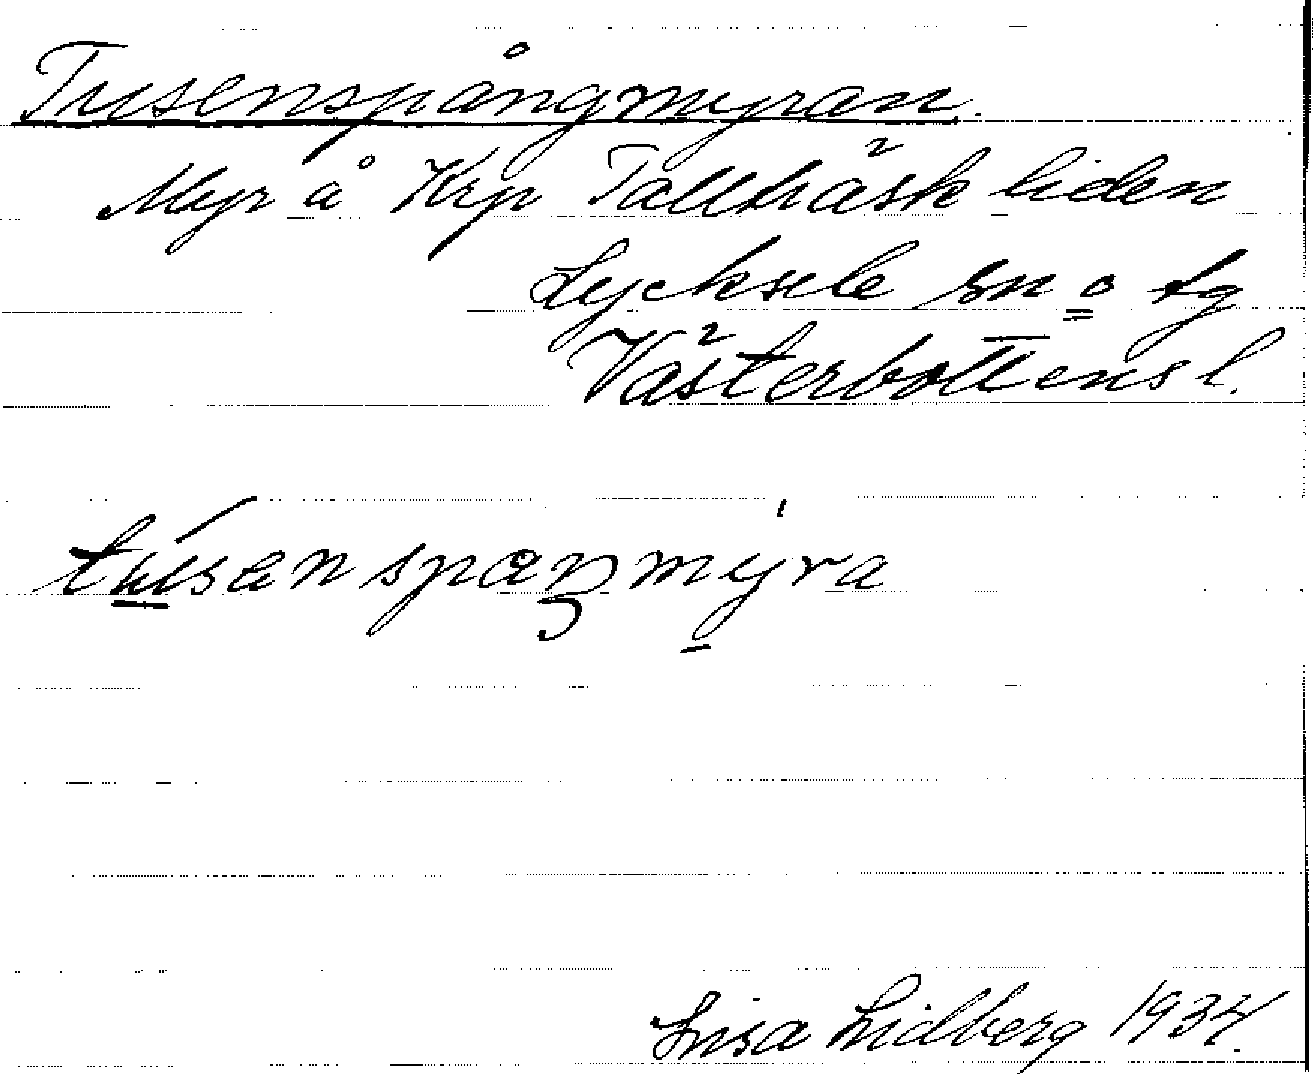 Tusenspångmyran.
Myr å Krp Tallträskliden
Lycksele sn o tg
Västerbottens l.
túsan spaŋmýra
Lisa Lidberg 1934.